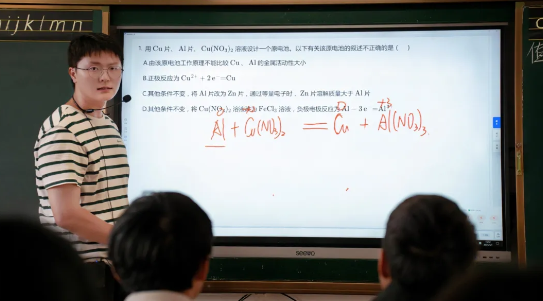 ijklmn
1. 用 Cu 片、Al 片、Cu(NO₃)₂ 溶液设计一个原电池。以下有关该原电池的叙述不正确的是（ ）
A.由该原电池工作原理不能比较 Cu、Al 的金属活动性大小
B.正极反应为 Cu²⁺ + 2e⁻=Cu
C.其他条件不变，将 Al 片改为 Zn 片，通过等量电子时，Zn 片溶解质量大于 Al 片
D.其他条件不变，将 Cu(NO₃)₂ 溶液 FeCl₃ 溶液，负极电极反应为 Al − 3e⁻ =Al
0 +2 0 +3
Al + Cu(NO₃)₂ = Cu + Al(NO₃)₃
seewo